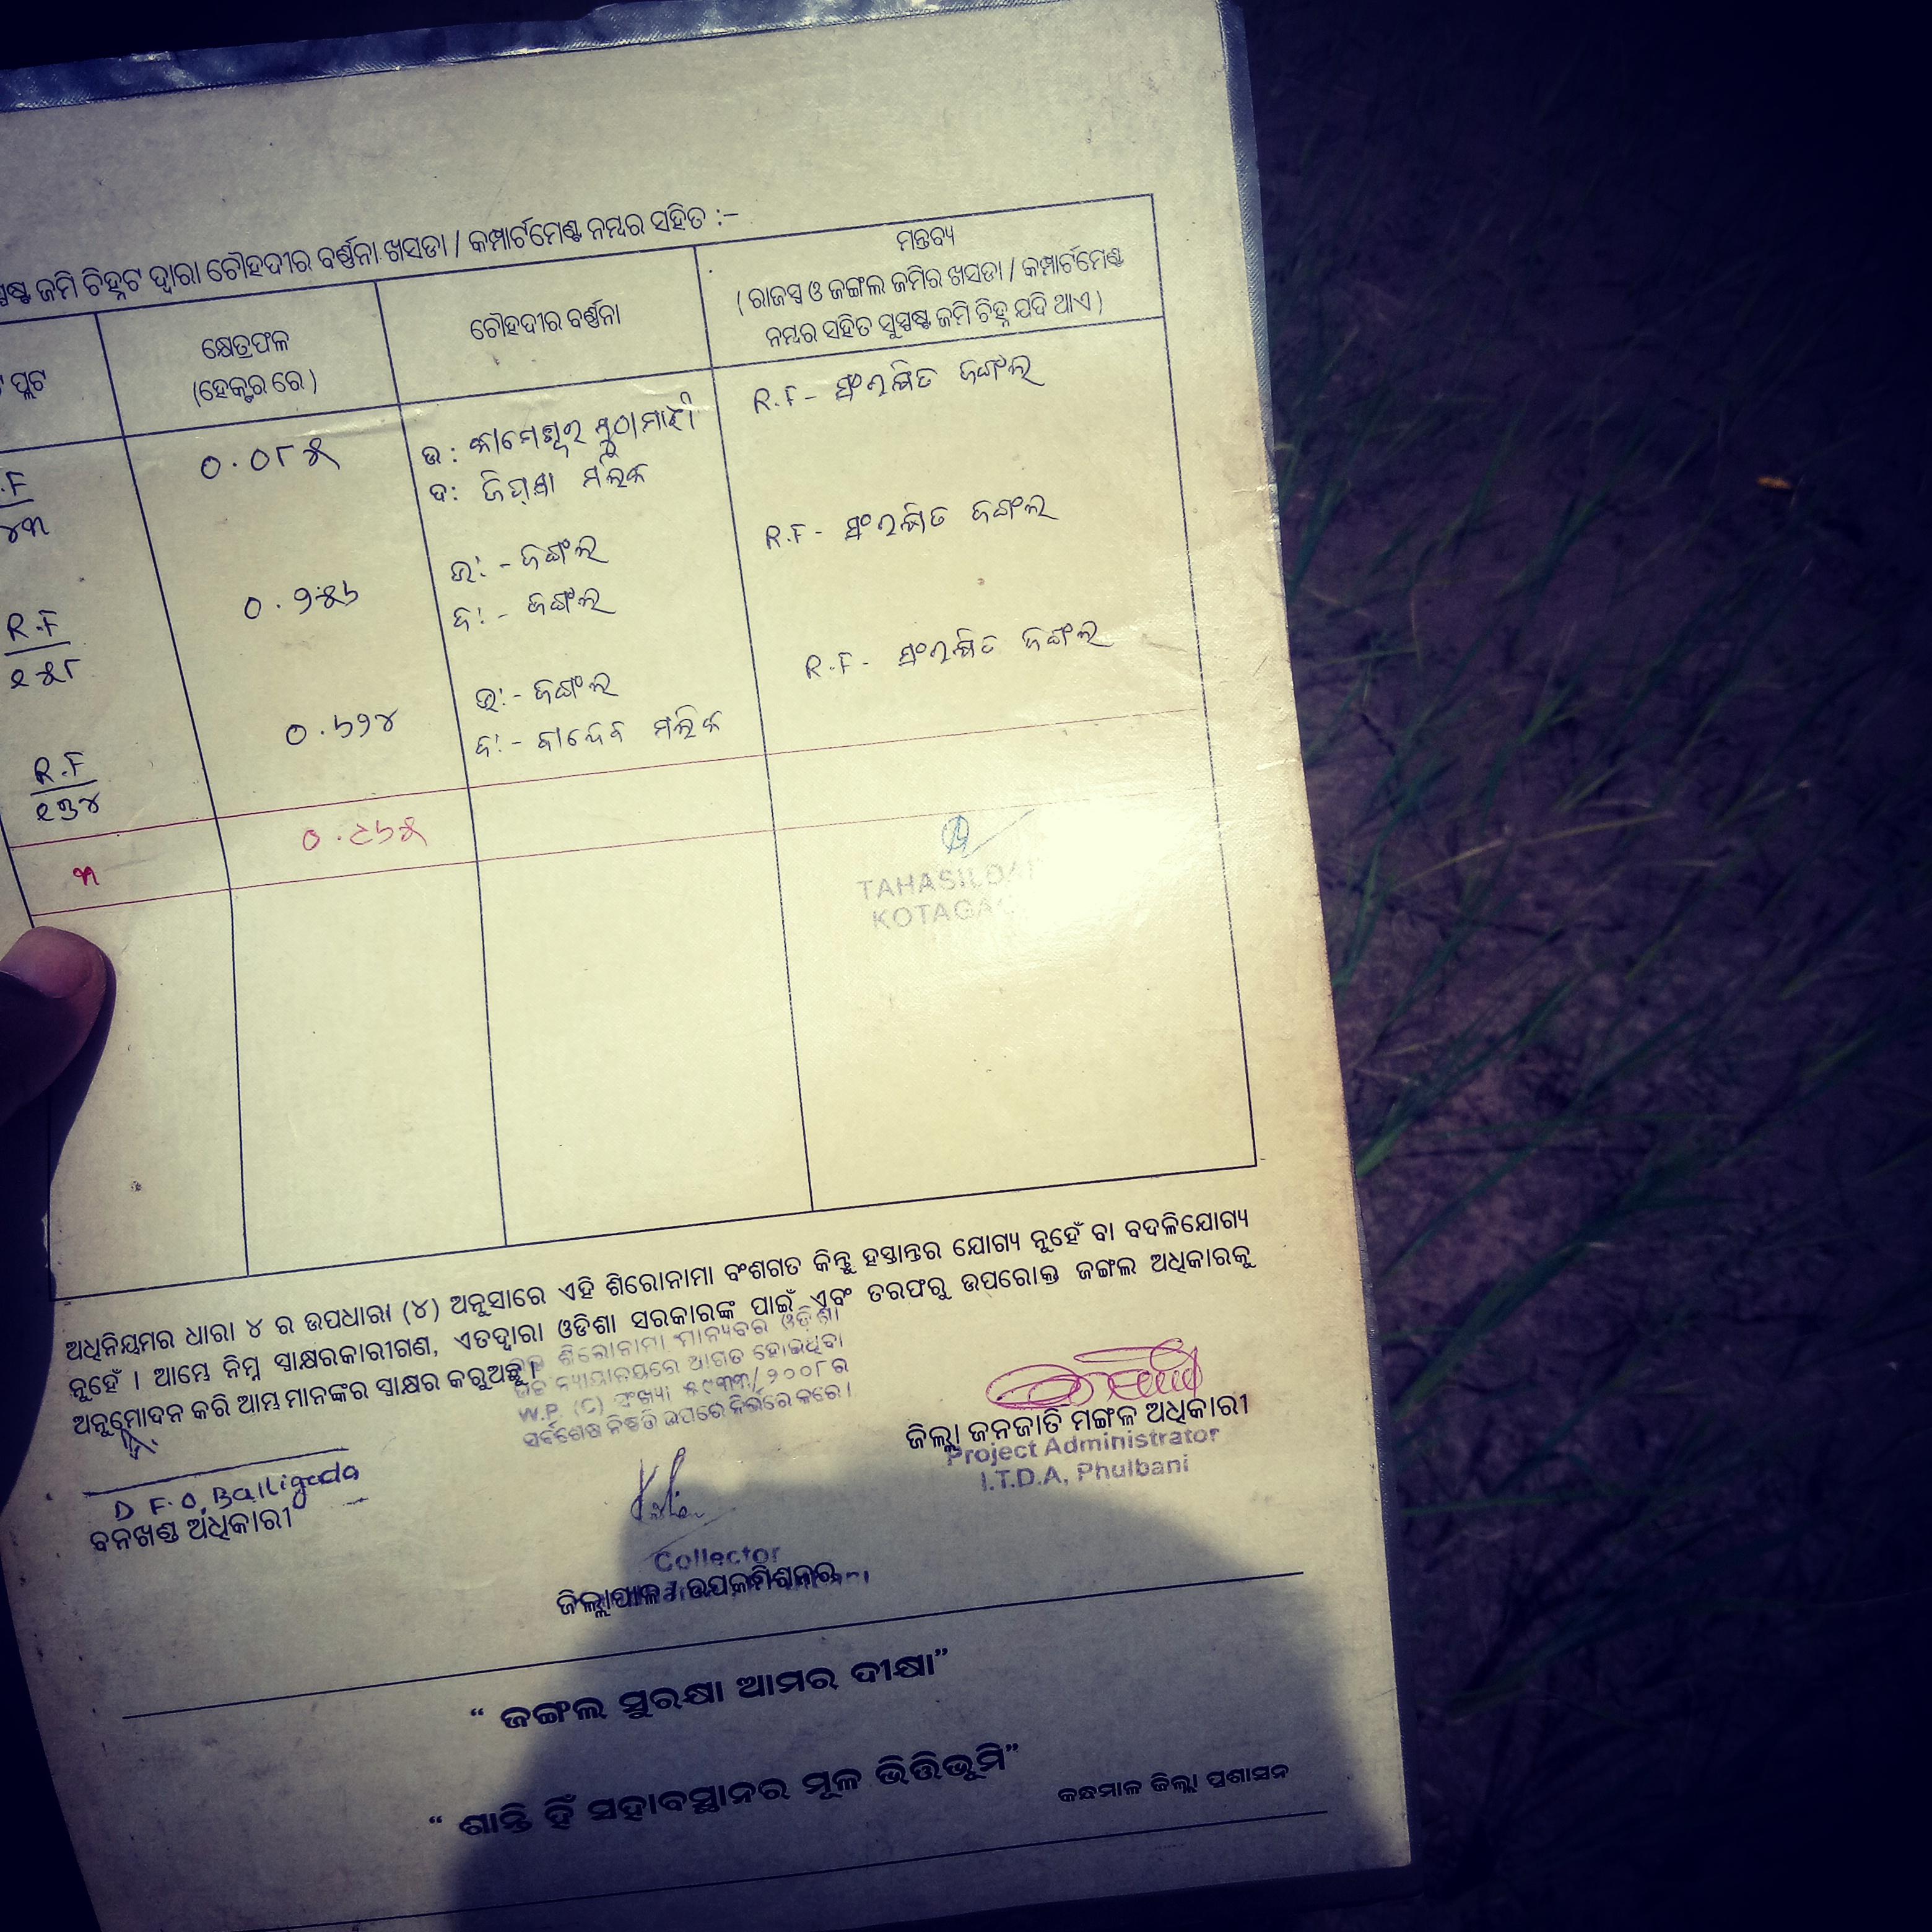 ଷ୍ଟ ଜମି ଚିହ୍ନଟ ଦ୍ୱାରା ଚୌହଦୀର ବର୍ଣ୍ଣନା ଖସଡା / କମ୍ପାର୍ଟମେଣ୍ଟ ନମ୍ବର ସହିତ :–
ପ୍ଲଟ
କ୍ଷେତ୍ରଫଳ
(ହେକ୍ଟର ରେ)
ଚୌହଦୀର ବର୍ଣ୍ଣନା
ମନ୍ତବ୍ୟ
( ରାଜସ୍ୱ ଓ ଜଙ୍ଗଲ ଜମିର ଖସଡା / କମ୍ପାର୍ଟମେଣ୍ଟ
ନମ୍ବର ସହିତ ସୁସ୍ପଷ୍ଟ ଜମି ଚିହ୍ନ ଯଦି ଥାଏ )
.F
୪୩
୦.୦୮୫
ଉ: କାମେଶ୍ୱର ମାଝୀ
ଦ: ମଲିକ
R.F - ସଂରକ୍ଷିତ ଜଙ୍ଗଲ
R.F
୧୫୮
୦.୨୫୬
ଉ: - ଜଙ୍ଗଲ
ଦ: - ଜଙ୍ଗଲ
R.F - ସଂରକ୍ଷିତ ଜଙ୍ଗଲ
R.F
୧୭୪
୦.୬୨୪
ଉ: - ଜଙ୍ଗଲ
ଦ: - ମଲିକ
R.F - ସଂରକ୍ଷିତ ଜଙ୍ଗଲ
୩
୦.୯୬୫
TAHASILDAR
KOTAGA
ଅଧିନିୟମର ଧାରା ୪ ର ଉପଧାରା (୪) ଅନୁସାରେ ଏହି ଶିରୋନାମା ବଂଶଗତ କିନ୍ତୁ ହସ୍ତାନ୍ତର ଯୋଗ୍ୟ ନୁହେଁ ବା ବଦଳିଯୋଗ୍ୟ
ନୁହେଁ । ଆମ୍ଭେ ନିମ୍ନ ସ୍ୱାକ୍ଷରକାରୀଗଣ, ଏତଦ୍ୱାରା ଓଡିଶା ସରକାରଙ୍କ ପାଇଁ ଏବଂ ତରଫରୁ ଉପରୋକ୍ତ ଜଙ୍ଗଲ ଅଧିକାରକୁ
ଅନୁମୋଦନ କରି ଆମ୍ଭ ମାନଙ୍କର ସ୍ୱାକ୍ଷର କରୁଅଛୁ ।
ଶିରୋନାମା ମାନ୍ୟବର ଓଡ଼ିଶା
ଉଚ୍ଚ ନ୍ୟାୟାଳୟରେ ଆଗତ ହୋଇଥିବା
W.P. (C) ସଂଖ୍ୟା ୫୯୩୩/୨୦୦୮ ର
ସର୍ବଶେଷ ନିଷ୍ପତ୍ତି ଉପରେ ନିର୍ଭର କରେ ।
D F.O, Balliguda
ବନଖଣ୍ଡ ଅଧିକାରୀ
Collector
ଜିଲ୍ଲାପାଳ / ଉପକମିଶନର
ଜିଲ୍ଲା ଜନଜାତି ମଙ୍ଗଳ ଅଧିକାରୀ
Project Administrator
I.T.D.A, Phulbani
“ ଜଙ୍ଗଲ ସୁରକ୍ଷା ଆମର ଦୀକ୍ଷା”
“ ଶାନ୍ତି ହିଁ ସହାବସ୍ଥାନର ମୂଳ ଭିତ୍ତିଭୂମି”
କନ୍ଧମାଳ ଜିଲ୍ଲା ପ୍ରଶାସନ